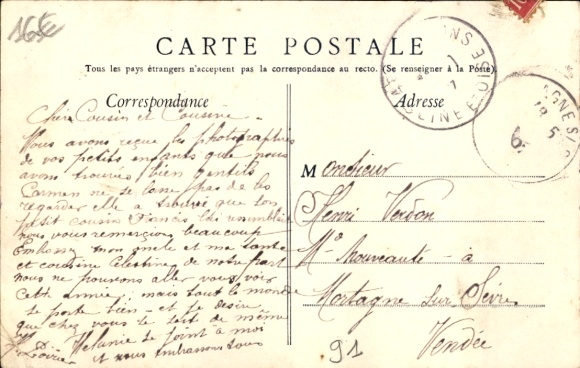 16€
CARTE POSTALE
Tous les pays étrangers n'acceptent pas la correspondance au recto. (Se renseigner à la Poste).
Correspondance
Adresse
Chers Cousin et Cousine
Nous avons reçue les photographies
de vos petits enfants que nous
avons trouvés bien gentils
Carmen ne se lasse pas de les
regarder elle a trouvé que son
petit cousin Francis lui ressemble
nous vous remercions beaucoup
Embrassez mon oncle et ma tante
et cousine Célestine de notre part
nous ne pouvons aller vous voir
cette année; mais tout le monde
se porte bien et je désire
que chez vous le tout de même
Mélanie se joint à moi
et nous embrassons tous
Monsieur
Henri Verdon
Md Nouveauté - à
Mortagne sur Sèvre
Vendée
91
SEINE-&-OISE